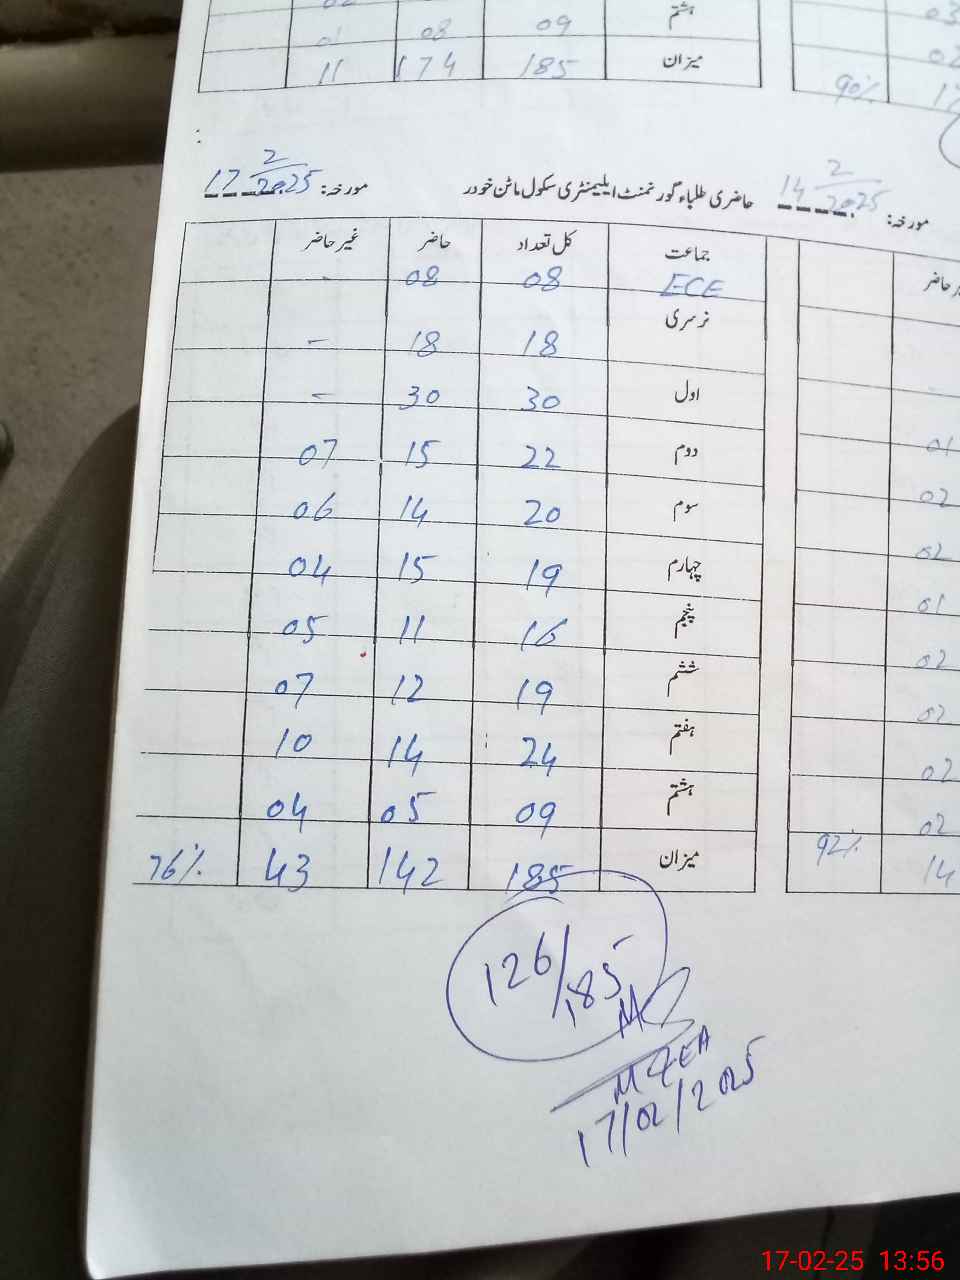 ہشتم 09 08 01 02
میزان 185 174 11
03
02
90٪ 17
حاضری طلباء گورنمنٹ ایلیمنٹری سکول مائن خودر مورخہ: 17 2/2025
مورخہ: 14 2/2025
جماعت کل تعداد حاضر غیر حاضر
ECE 08 08 -
نرسری 18 18 -
اول 30 30 -
دوم 22 15 07
سوم 20 14 06
چہارم 19 15 04
پنجم 16 11 05
ششم 19 12 07
ہفتم 24 14 10
ہشتم 09 05 04
میزان 185 142 43 76٪
حاضر
01
02
02
01
02
02
02
02
14 92٪
126/185
MZEA
17/02/2025
17-02-25 13:56